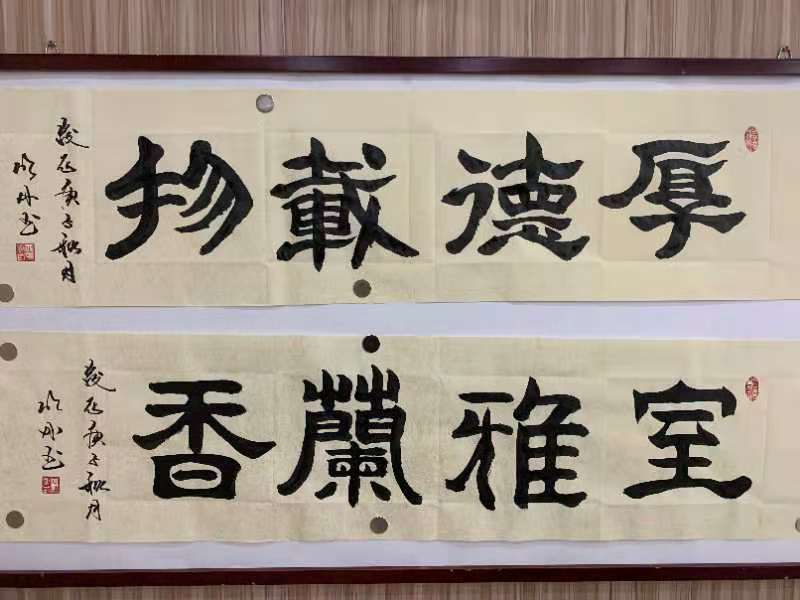 厚德載物
歲在庚子秋月
室雅蘭香
歲在庚子秋月